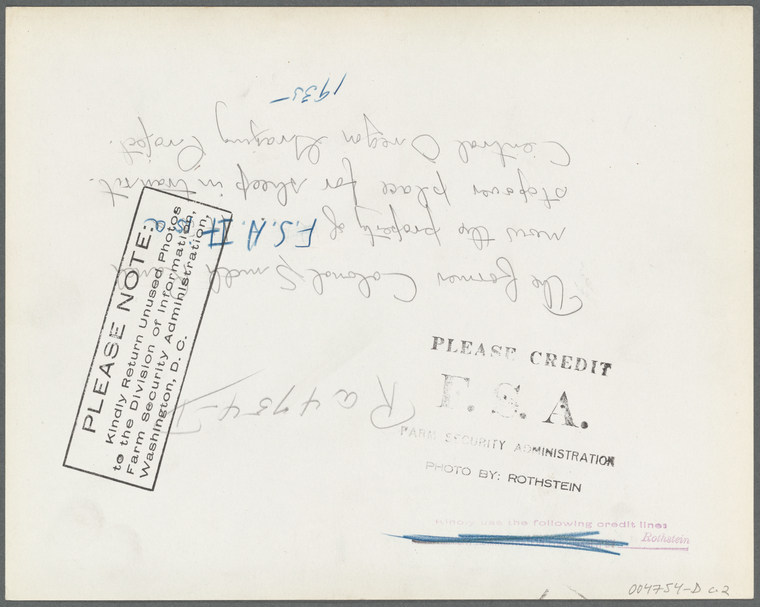 The former Colonel Smell
now the property of
stopover place for sheep in transit.
Central Oregon Grazing Project.
1935
F.S.A.
Ra 4754-D
PLEASE NOTE:
Kindly Return Unused Photos
to the Division of Information,
Farm Security Administration,
Washington, D. C.
PLEASE CREDIT
F. S. A.
FARM SECURITY ADMINISTRATION
PHOTO BY: ROTHSTEIN
Kindly use the following credit lines
Rothstein
004754-D c.2